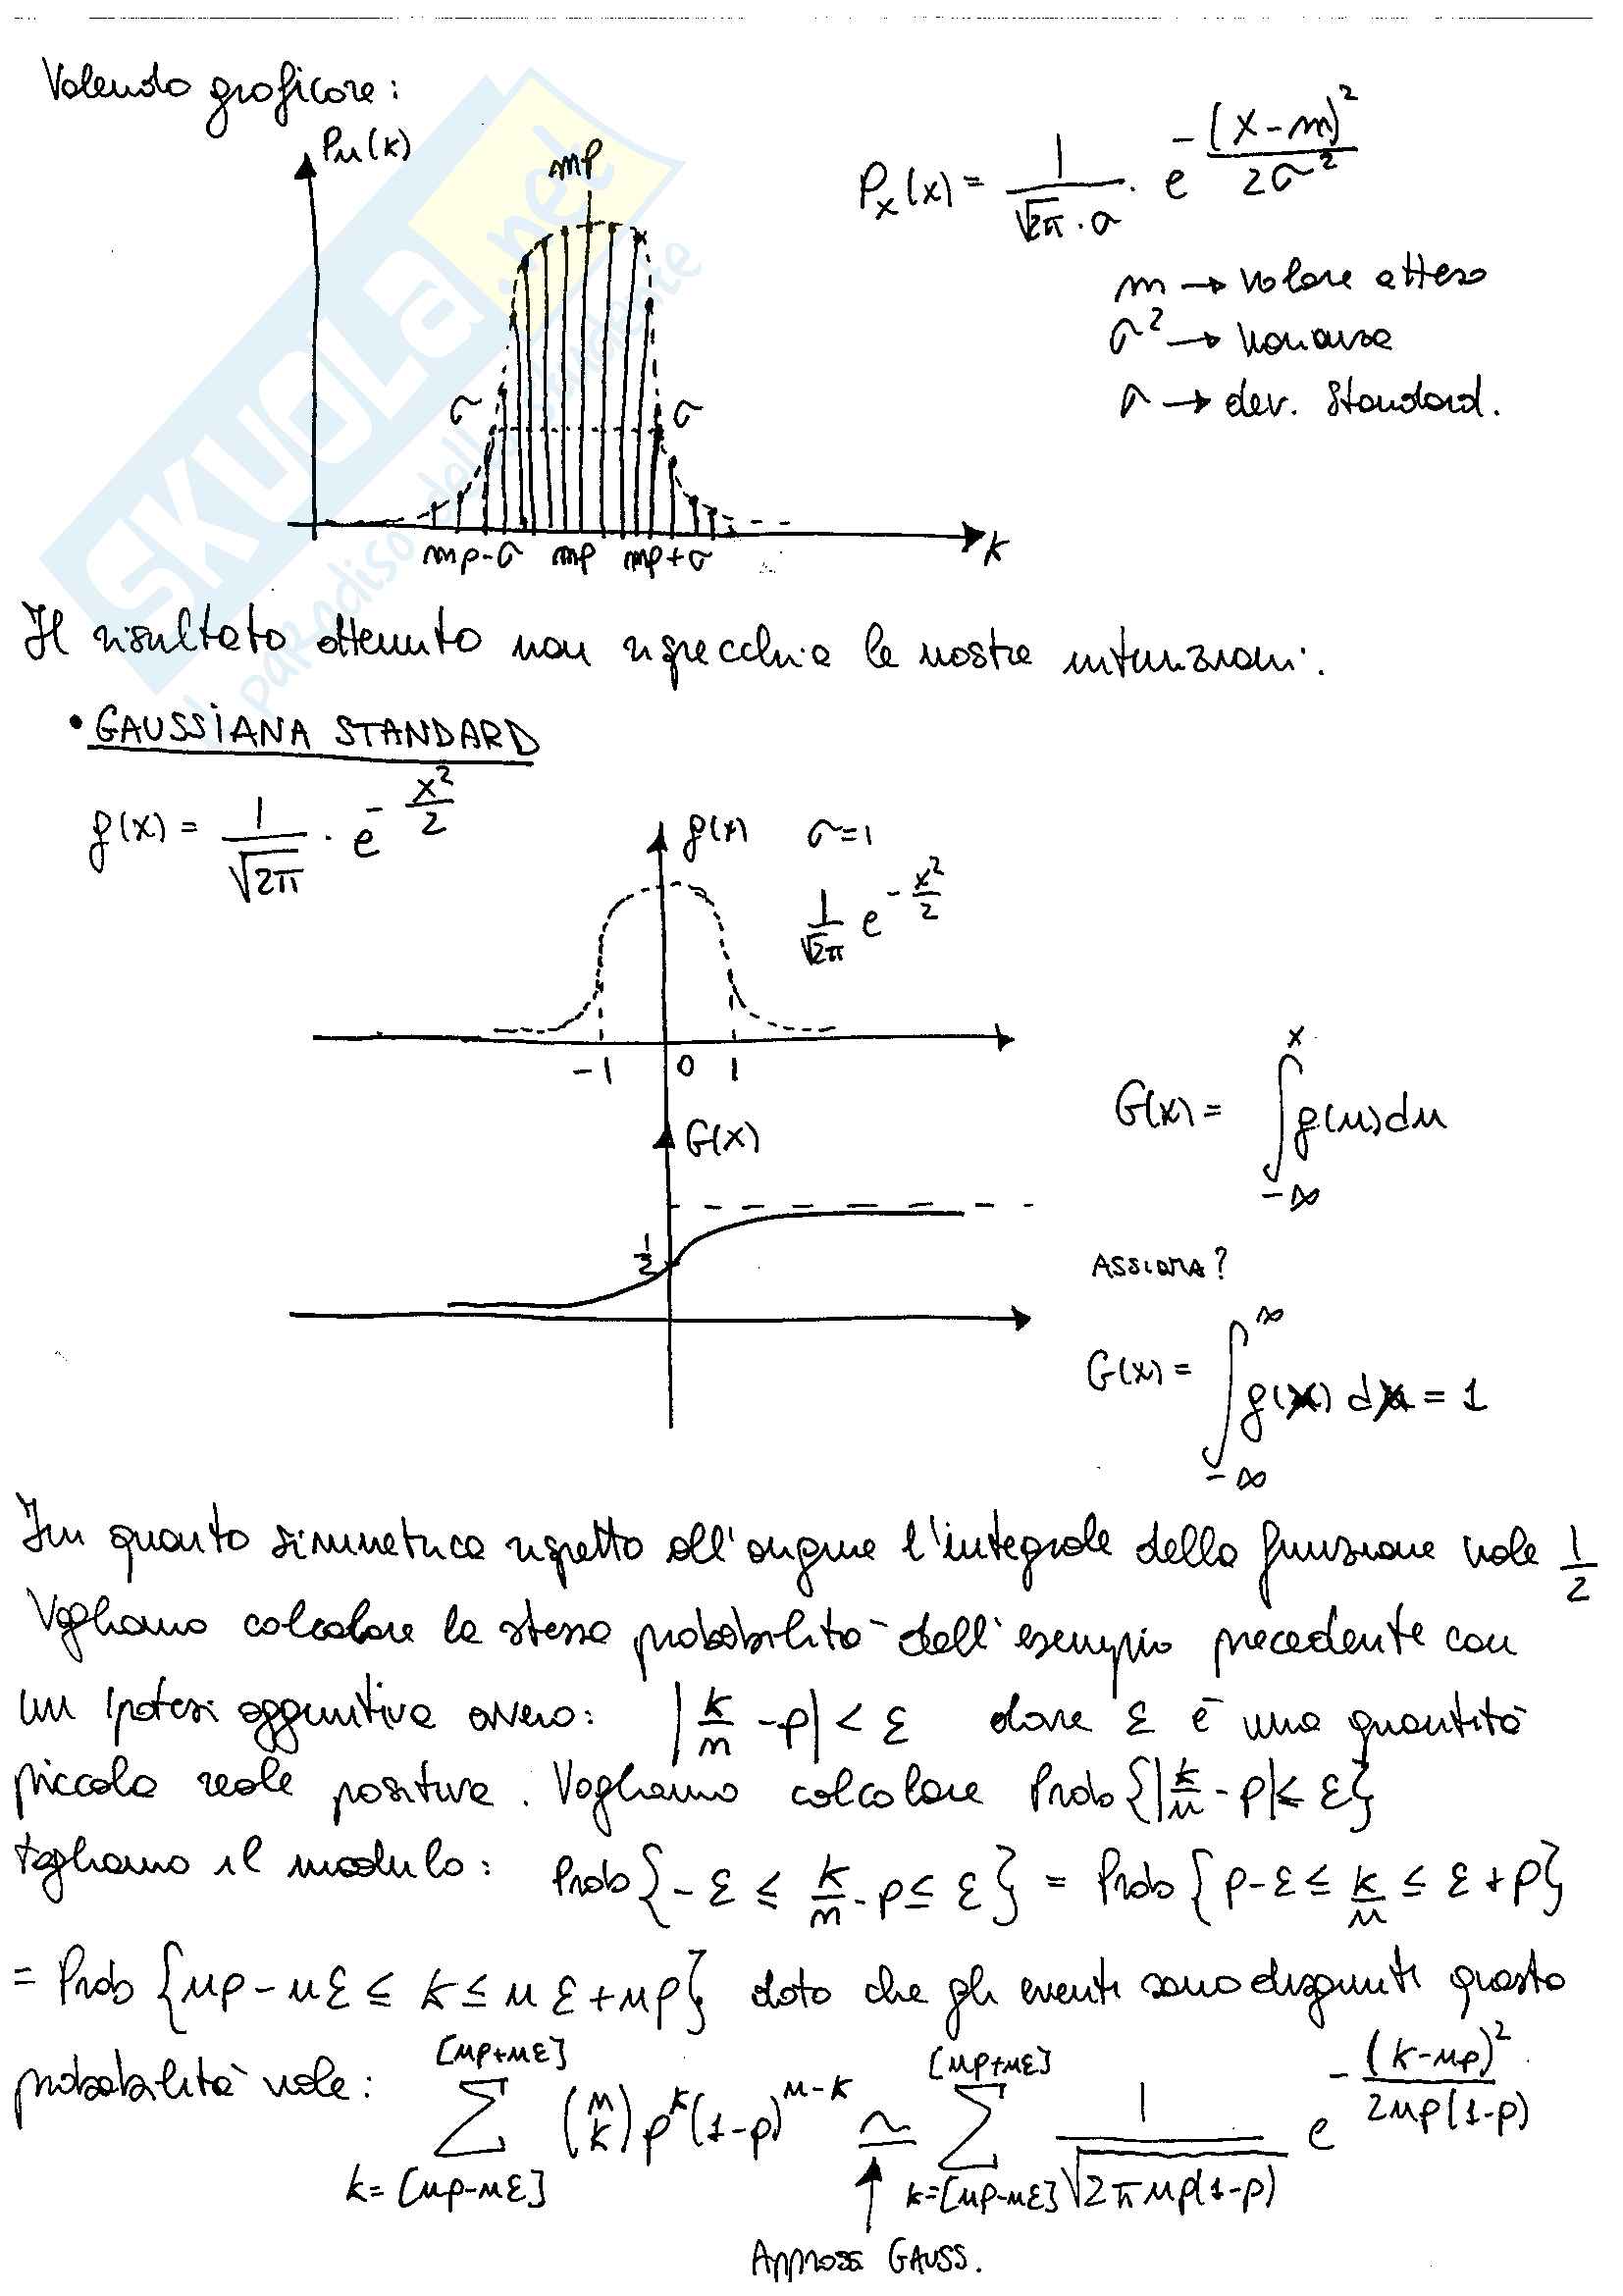 Volendo graficare:
Pn(k)
np
σ σ
np-σ np np+σ k
Px(x) = 1/(√2π · σ) · e^-(x-m)²/2σ²
m → valore atteso
σ² → varianza
σ → dev. standard.
SKUOLA.net
il paradiso dello studente
Il risultato ottenuto non rispecchia le nostre intuizioni.
• GAUSSIANA STANDARD
g(x) = 1/√2π · e^-x²/2
g(x) σ=1
1/√2π e^-x²/2
-1 0 1
G(x)
1/2
G(x) = ∫_{-∞}^{x} g(u)du
ASSIOMA?
G(x) = ∫_{-∞}^{∞} g(x) dx = 1
In quanto simmetrica rispetto all'origine l'integrale della funzione vale 1/2
Vogliamo calcolare la stessa probabilità dell'esempio precedente con
un ipotesi aggiuntiva ovvero: |k/n - p| < ε dove ε è una quantità
piccola reale positiva. Vogliamo calcolare Prob{|k/n - p| ≤ ε}
togliamo il modulo: Prob{-ε ≤ k/n - p ≤ ε} = Prob{p-ε ≤ k/n ≤ ε+p}
= Prob{np-nε ≤ k ≤ nε+np} dato che gli eventi sono disgiunti questa
probabilità vale: ∑_{k=[np-nε]}^{[np+nε]} (n k) p^k (1-p)^{n-k} ≃ ∑_{k=[np-nε]}^{[np+nε]} 1/√2πnp(1-p) e^-(k-np)²/2np(1-p)
Appross GAUSS.